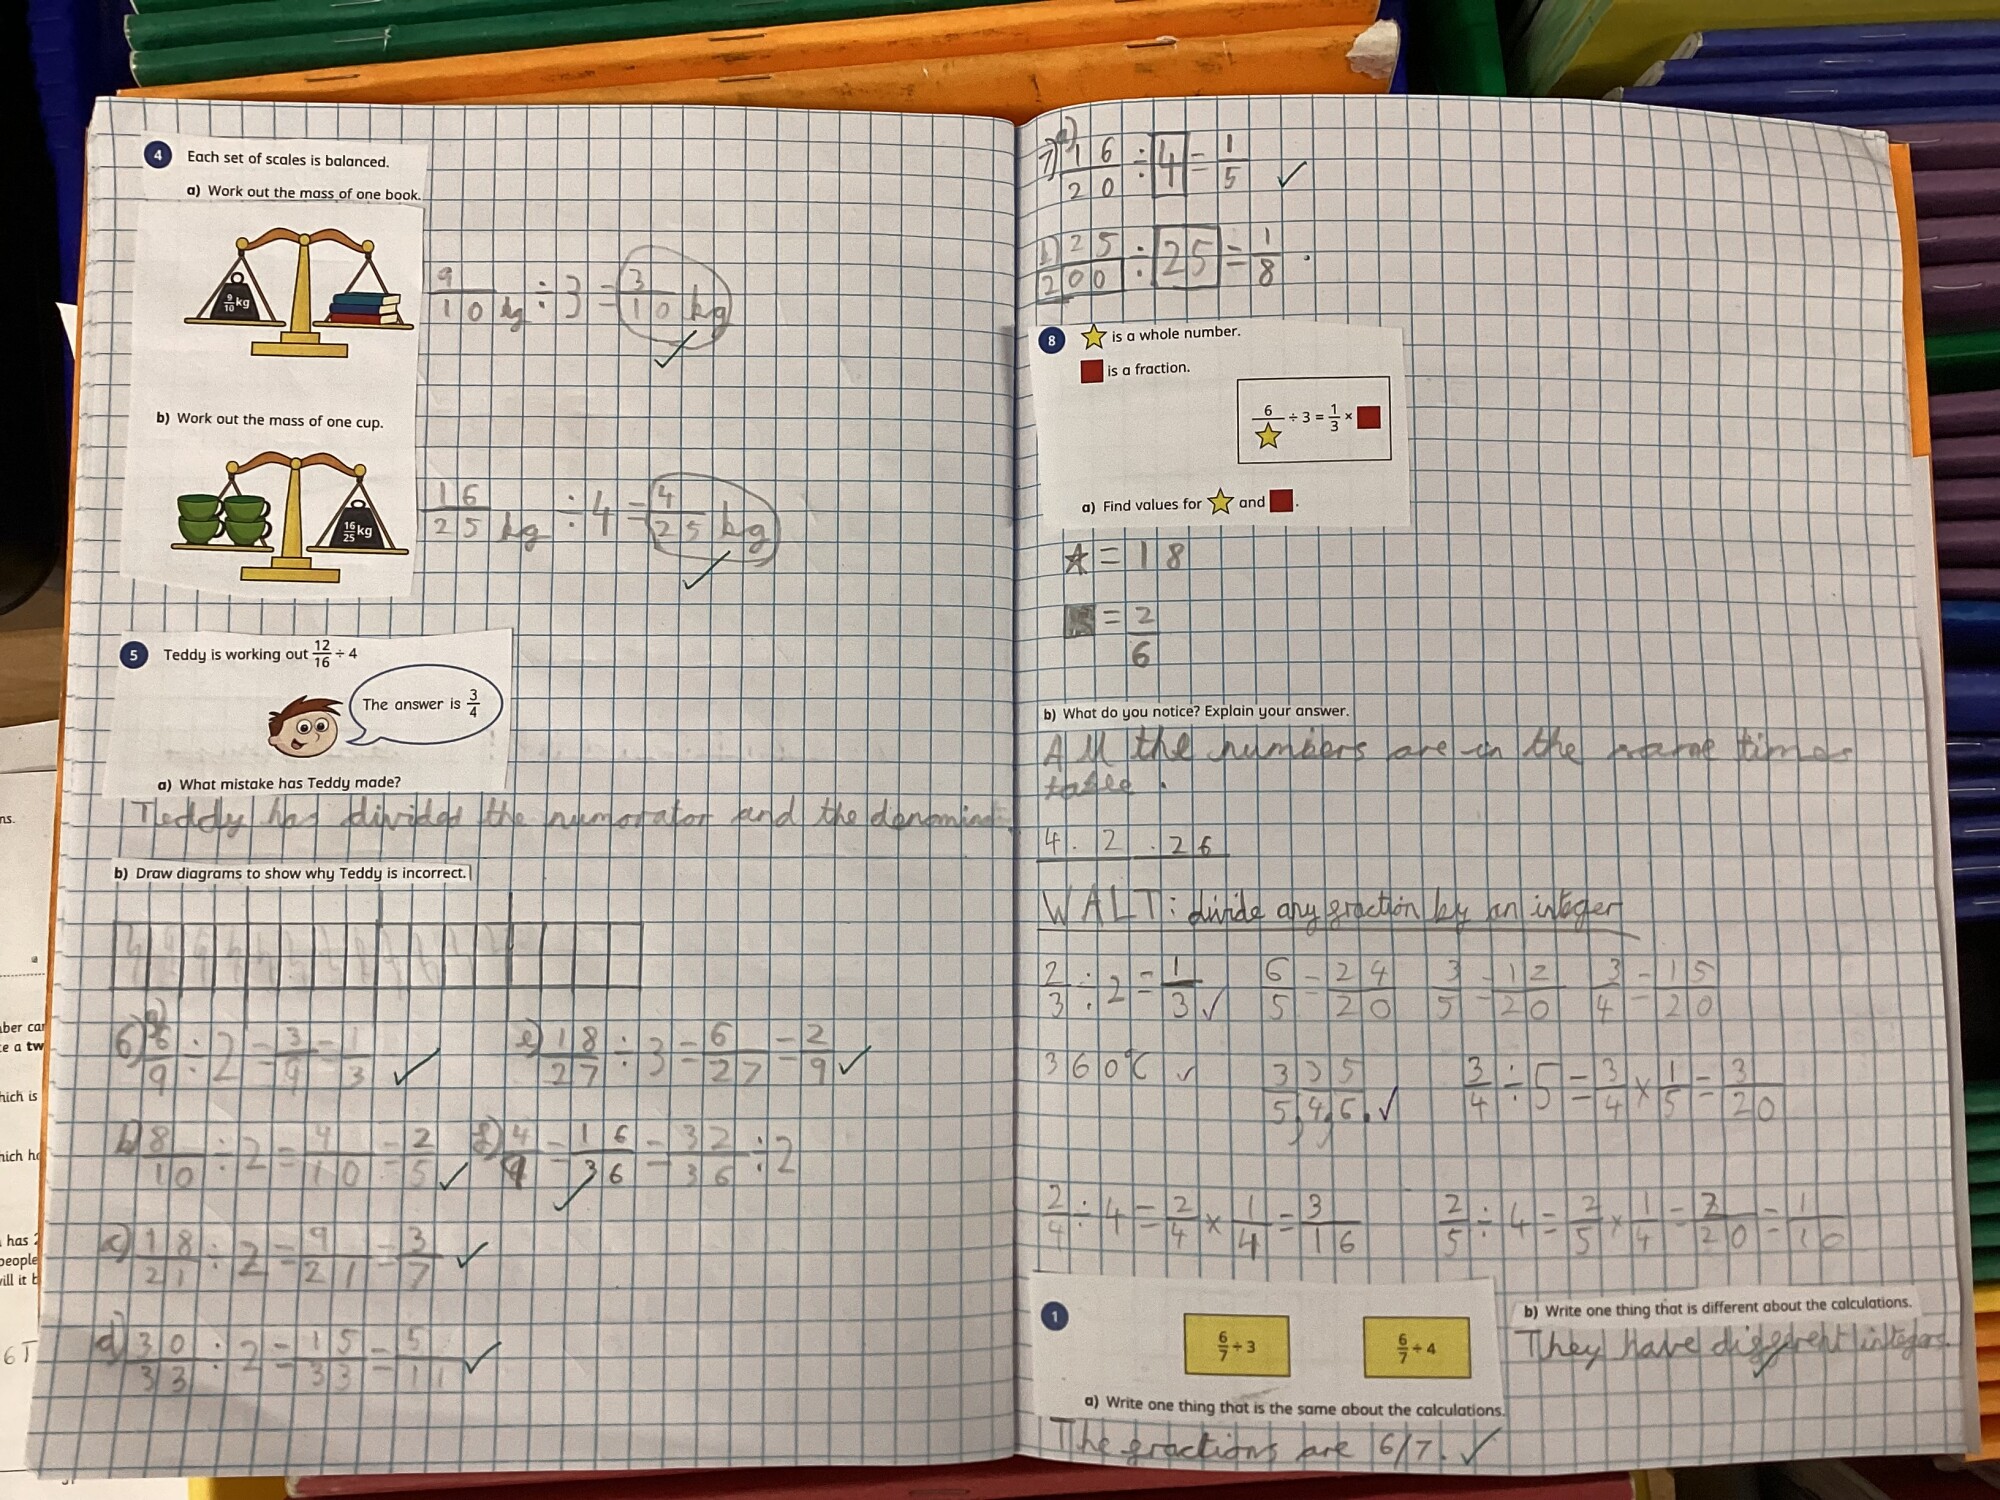 4 Each set of scales is balanced.
a) Work out the mass of one book.
9/10 kg
9/10 kg ÷ 3 = 3/10 kg ✓
b) Work out the mass of one cup.
16/25 kg
16/25 kg ÷ 4 = 4/25 kg ✓
5 Teddy is working out 12/16 ÷ 4
The answer is 3/4
a) What mistake has Teddy made?
Teddy has divided the numorator and the denomina
b) Draw diagrams to show why Teddy is incorrect.
6) a) 6/9 ÷ 2 = 3/9 = 1/3 ✓
e) 18/27 ÷ 3 = 6/27 = 2/9 ✓
b) 8/10 ÷ 2 = 4/10 = 2/5 ✓
f) 4/9 = 16/36 = 32/36 ÷ 2 ✓
c) 18/21 ÷ 2 = 9/21 = 3/7 ✓
d) 30/33 ÷ 2 = 15/33 = 5/11 ✓
7) a) 16/20 ÷ 4 = 1/5 ✓
b) 25/200 ÷ 25 = 1/8 .
8 ★ is a whole number.
■ is a fraction.
6/★ ÷ 3 = 1/3 × ■
a) Find values for ★ and ■.
★ = 18
■ = 2/6
b) What do you notice? Explain your answer.
All the numbers are in the same times
table .
4.2.26
WALT: divide any fraction by an integer
2/3 ÷ 2 = 1/3 ✓ 6/5 = 24/20 3/5 = 12/20 3/4 = 15/20
360°C ✓
3/4 ÷ 5 = 3/4 × 1/5 = 3/20
2/4 ÷ 4 = 2/4 × 1/4 = 3/16
2/5 ÷ 4 = 2/5 × 1/4 = 2/20 = 1/10
1
6/7 ÷ 3
6/7 ÷ 4
a) Write one thing that is the same about the calculations.
The fractions are 6/7. ✓
b) Write one thing that is different about the calculations.
They have different integers. ✓